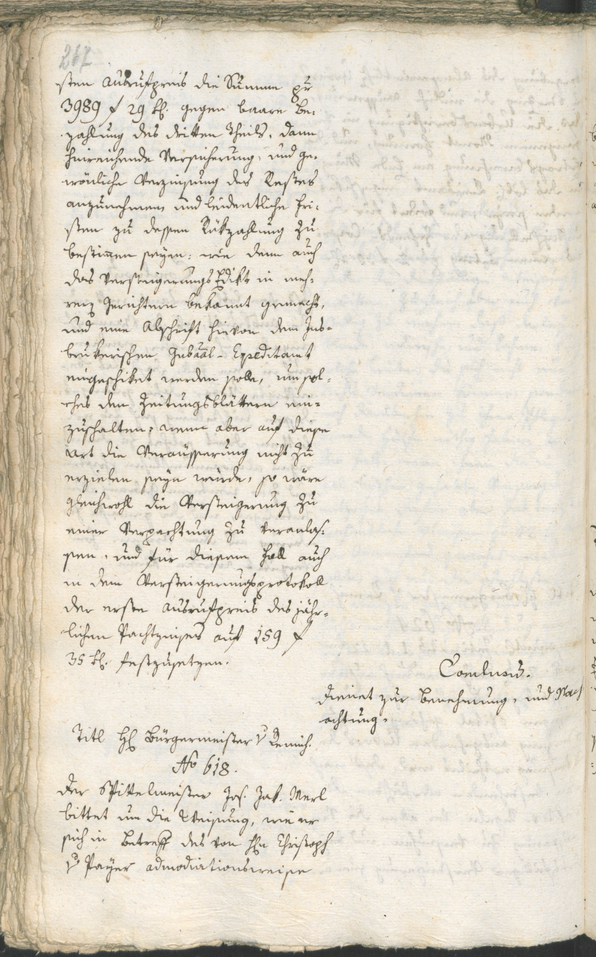 217
sten Ausrufpreis die Summe pr
3989 f 29 kr. gegen baare Be-
zahlung des dritten Theils, dann
hinreichende Versicherung, und ge-
wönliche Verzinsung des Restes
anzunehmen, und leidentliche Fri-
sten zu dessen Rükzahlung zu
bestimmen seyen: wie dann auch
das Versteigerungs Edikt in meh-
rern Gerichtern bekannt gemacht,
und eine Abschrift hievon dem Ins-
brukerischen Gubaal-Expeditamt
eingeschiket werden solle, um sol-
ches den Zeitungsblättern ein-
zuschalten; wenn aber auf diese
Art die Veräusserung nicht zu
erzielen seyn würde, so wäre
gleichwohl die Versteigerung zu
einer Verpachtung zu veranlas-
sen, und für diesem Fall auch
in dem Versteigerungsprotokoll
der erste Ausrufpreis des jähr-
lichen Pachtzinses auf 159 f
35 kr. festzusetzen.
Conclusum.
dienet zur Benehmung, und
achtung.
Titl H. Bürgermeister v
No 618.
Der Spittelmeister Jos. Jak. Merl
bittet um die Weisung, wie er
sich in Betreff des von Hn Christoph
v Payer admodiationsweise